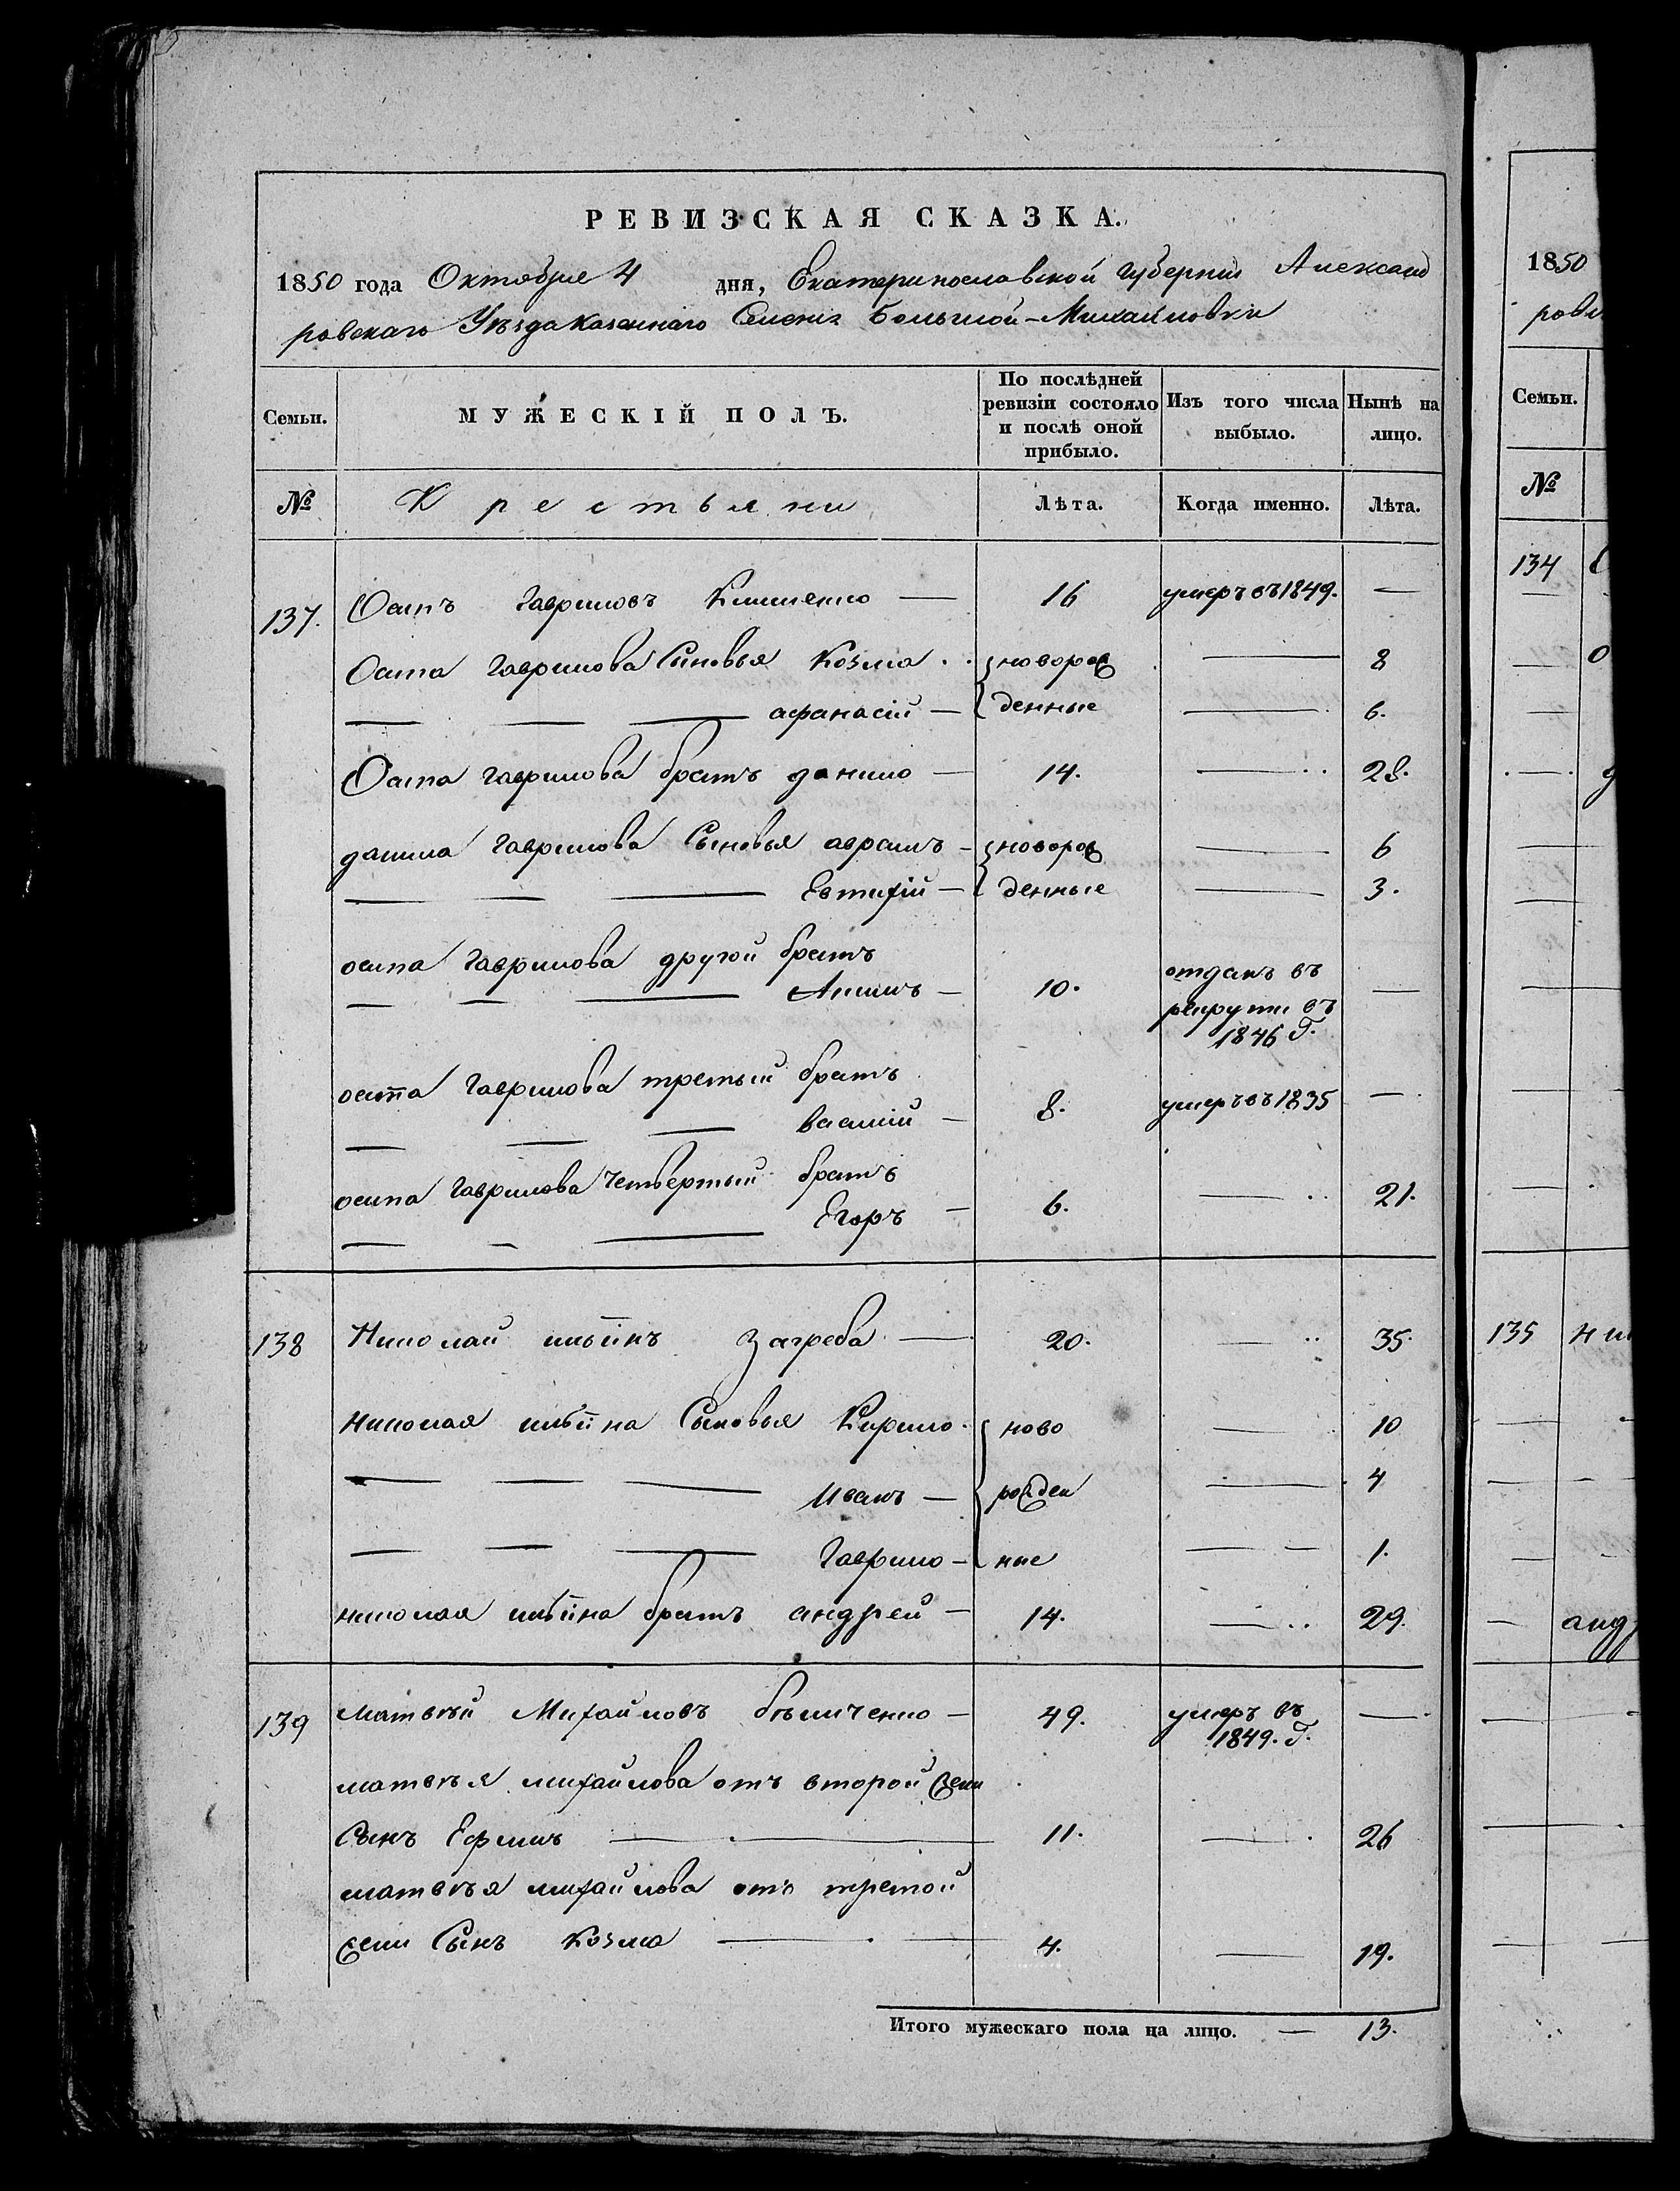 РЕВИЗСКАЯ СКАЗКА.
1850 года Октября 4 дня, Екатеринославской губернии Александ
ровскаго Уѣзда Казеннаго Селенія Большой-Михайловки
Семьи. МУЖЕСКІЙ ПОЛЪ. По послѣдней ревизіи состояло и послѣ оной прибыло. Изъ того числа выбыло. Нынѣ на лицо.
№ Крестьяни Лѣта. Когда именно. Лѣта.
137. Осипъ Гавриловъ Клименко — 16 умеръ въ 1849. —
Осипа Гаврилова Сыновья Козма . . новорож — 8
— — — афанасій — денные — 6.
Осипа Гаврилова братъ данило — 14. — 28.
данила Гаврилова Сыновья аврамъ — новорож — 6
— — — Евтифій — денные — 3.
осипа Гаврилова другой братъ
— — — Акимъ — 10. отданъ въ рекруты въ 1846 Г. —
осипа Гаврилова третьий братъ
— — — василий — 8. умеръ въ 1835 —
осипа Гаврилова Четвертый братъ
— — — Егоръ — 6. — 21.
138 Николай ильинъ Загреба — 20. — 35.
николая ильина Сыновья Кирило ново — 10
— — — Иванъ — рожден — 4
— — — Гаврило — ные — 1.
николая ильина братъ андрей — 14. — 29.
139 матвѣй Михайловъ бѣличенко — 49. умеръ въ 1849. Г. —
матвѣя михайлова отъ второй жени
Сынъ Ефимъ — 11. — 26
матвѣя михайлова отъ третой
жени Сынъ Козма — 4. — 19.
Итого мужескаго пола на лицо. — 13.
1850
ровс
Семьи.
№
134
135 ни
анд